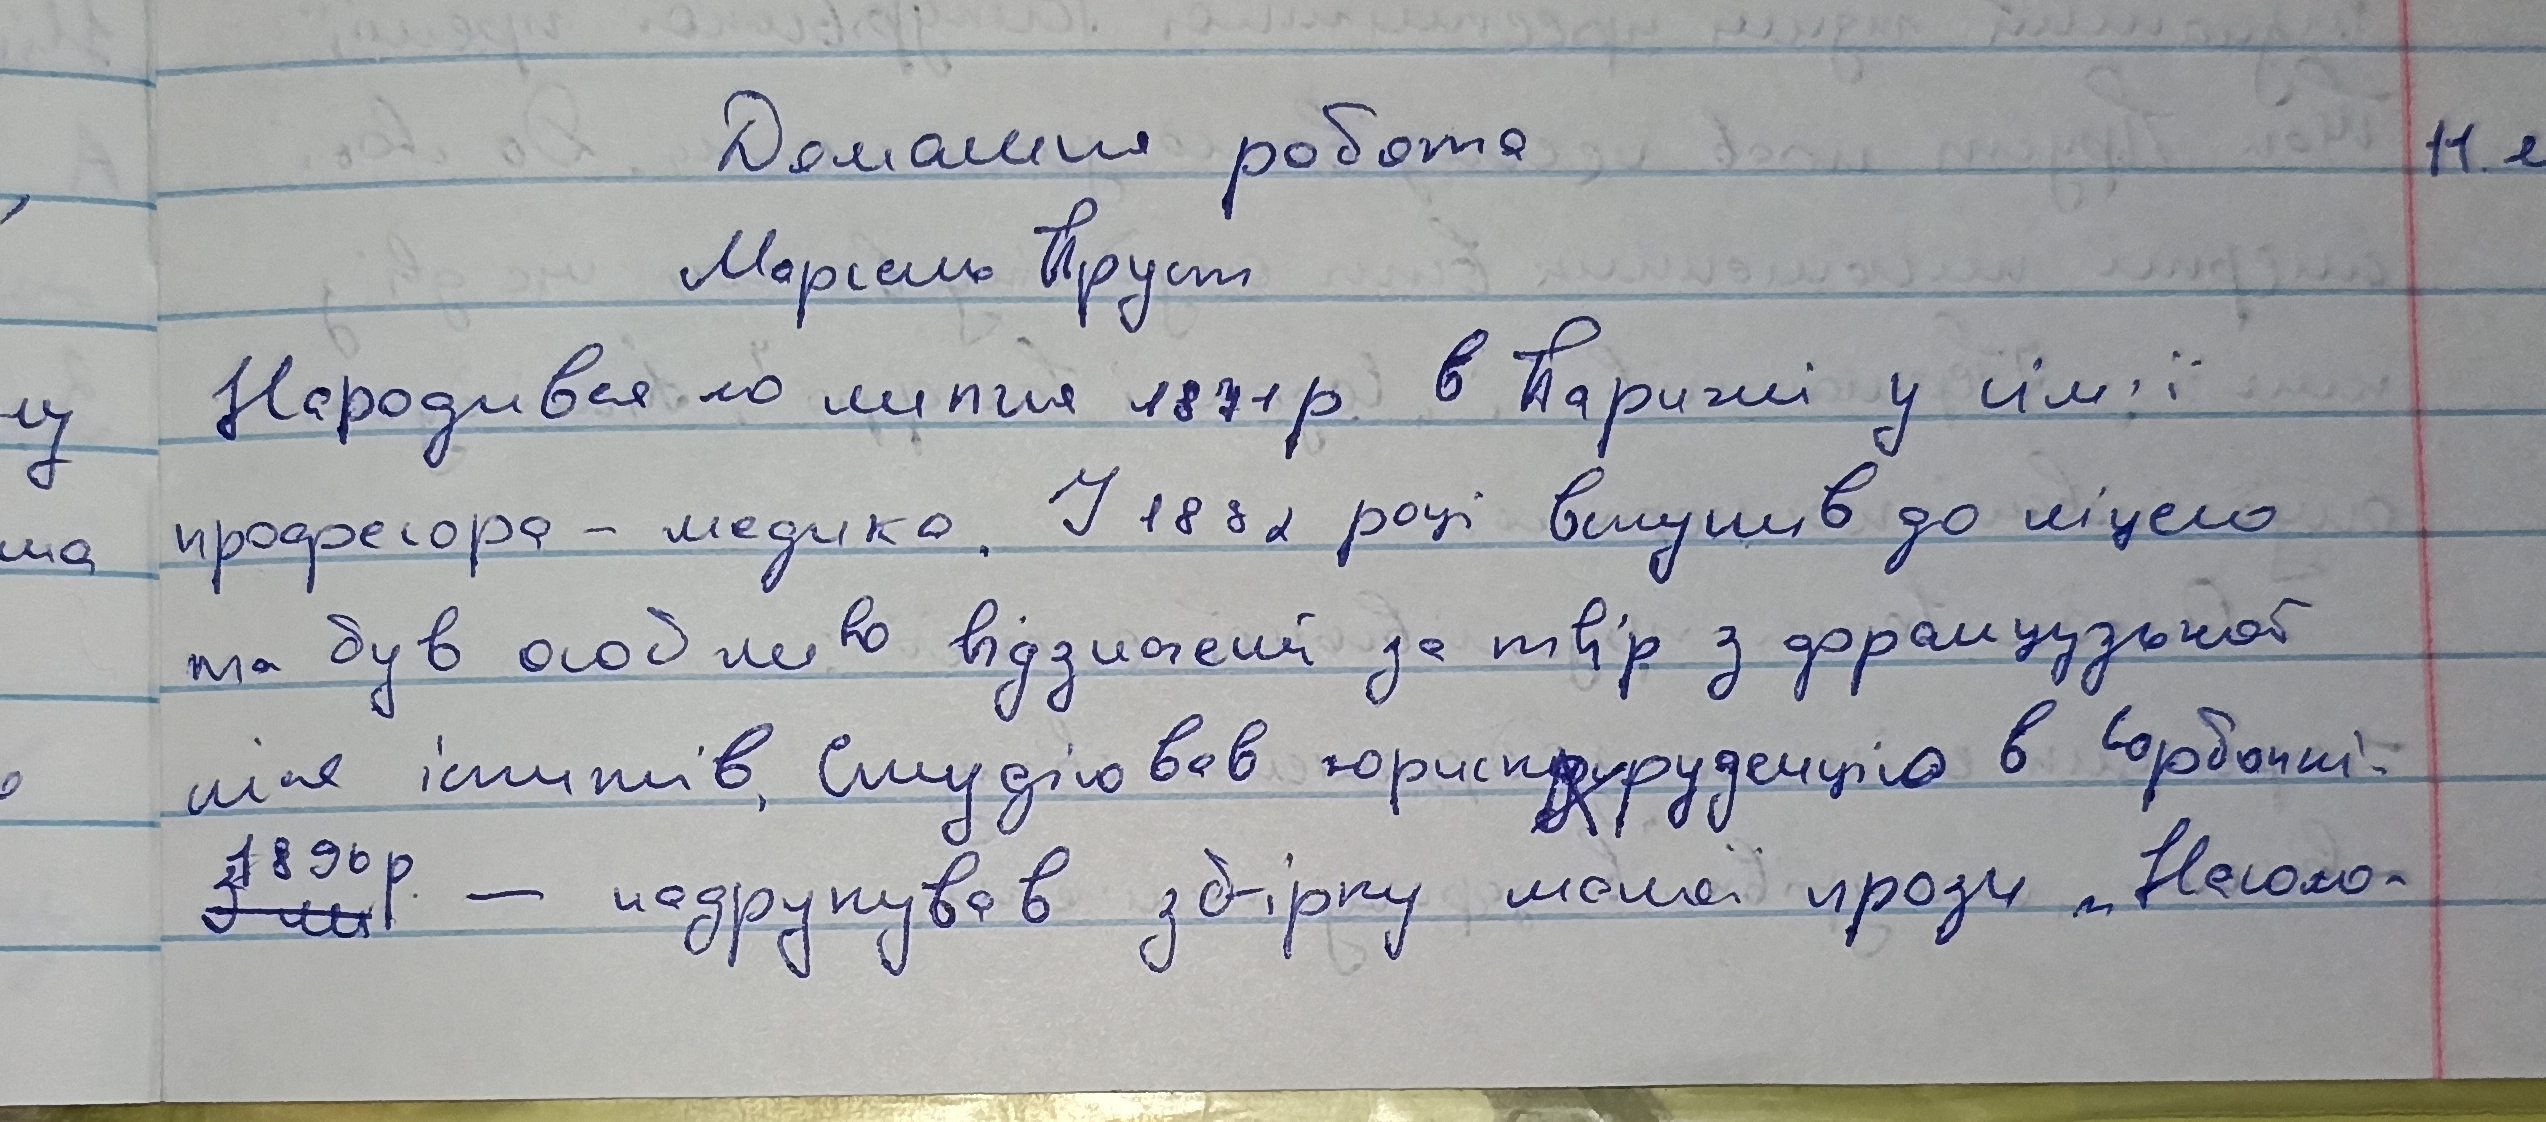 Домашня робота
Марсель Пруст
Народився 10 липня 1871 р. в Парижі у сім'ї
професора - медика. У 1882 році вступив до ліцею
та був особливо відзначений за твір з французької
після іспитів. Студіював юриспруденцію в Сорбонні.
1896 р. — надрукував збірку малої прози „Насоло-